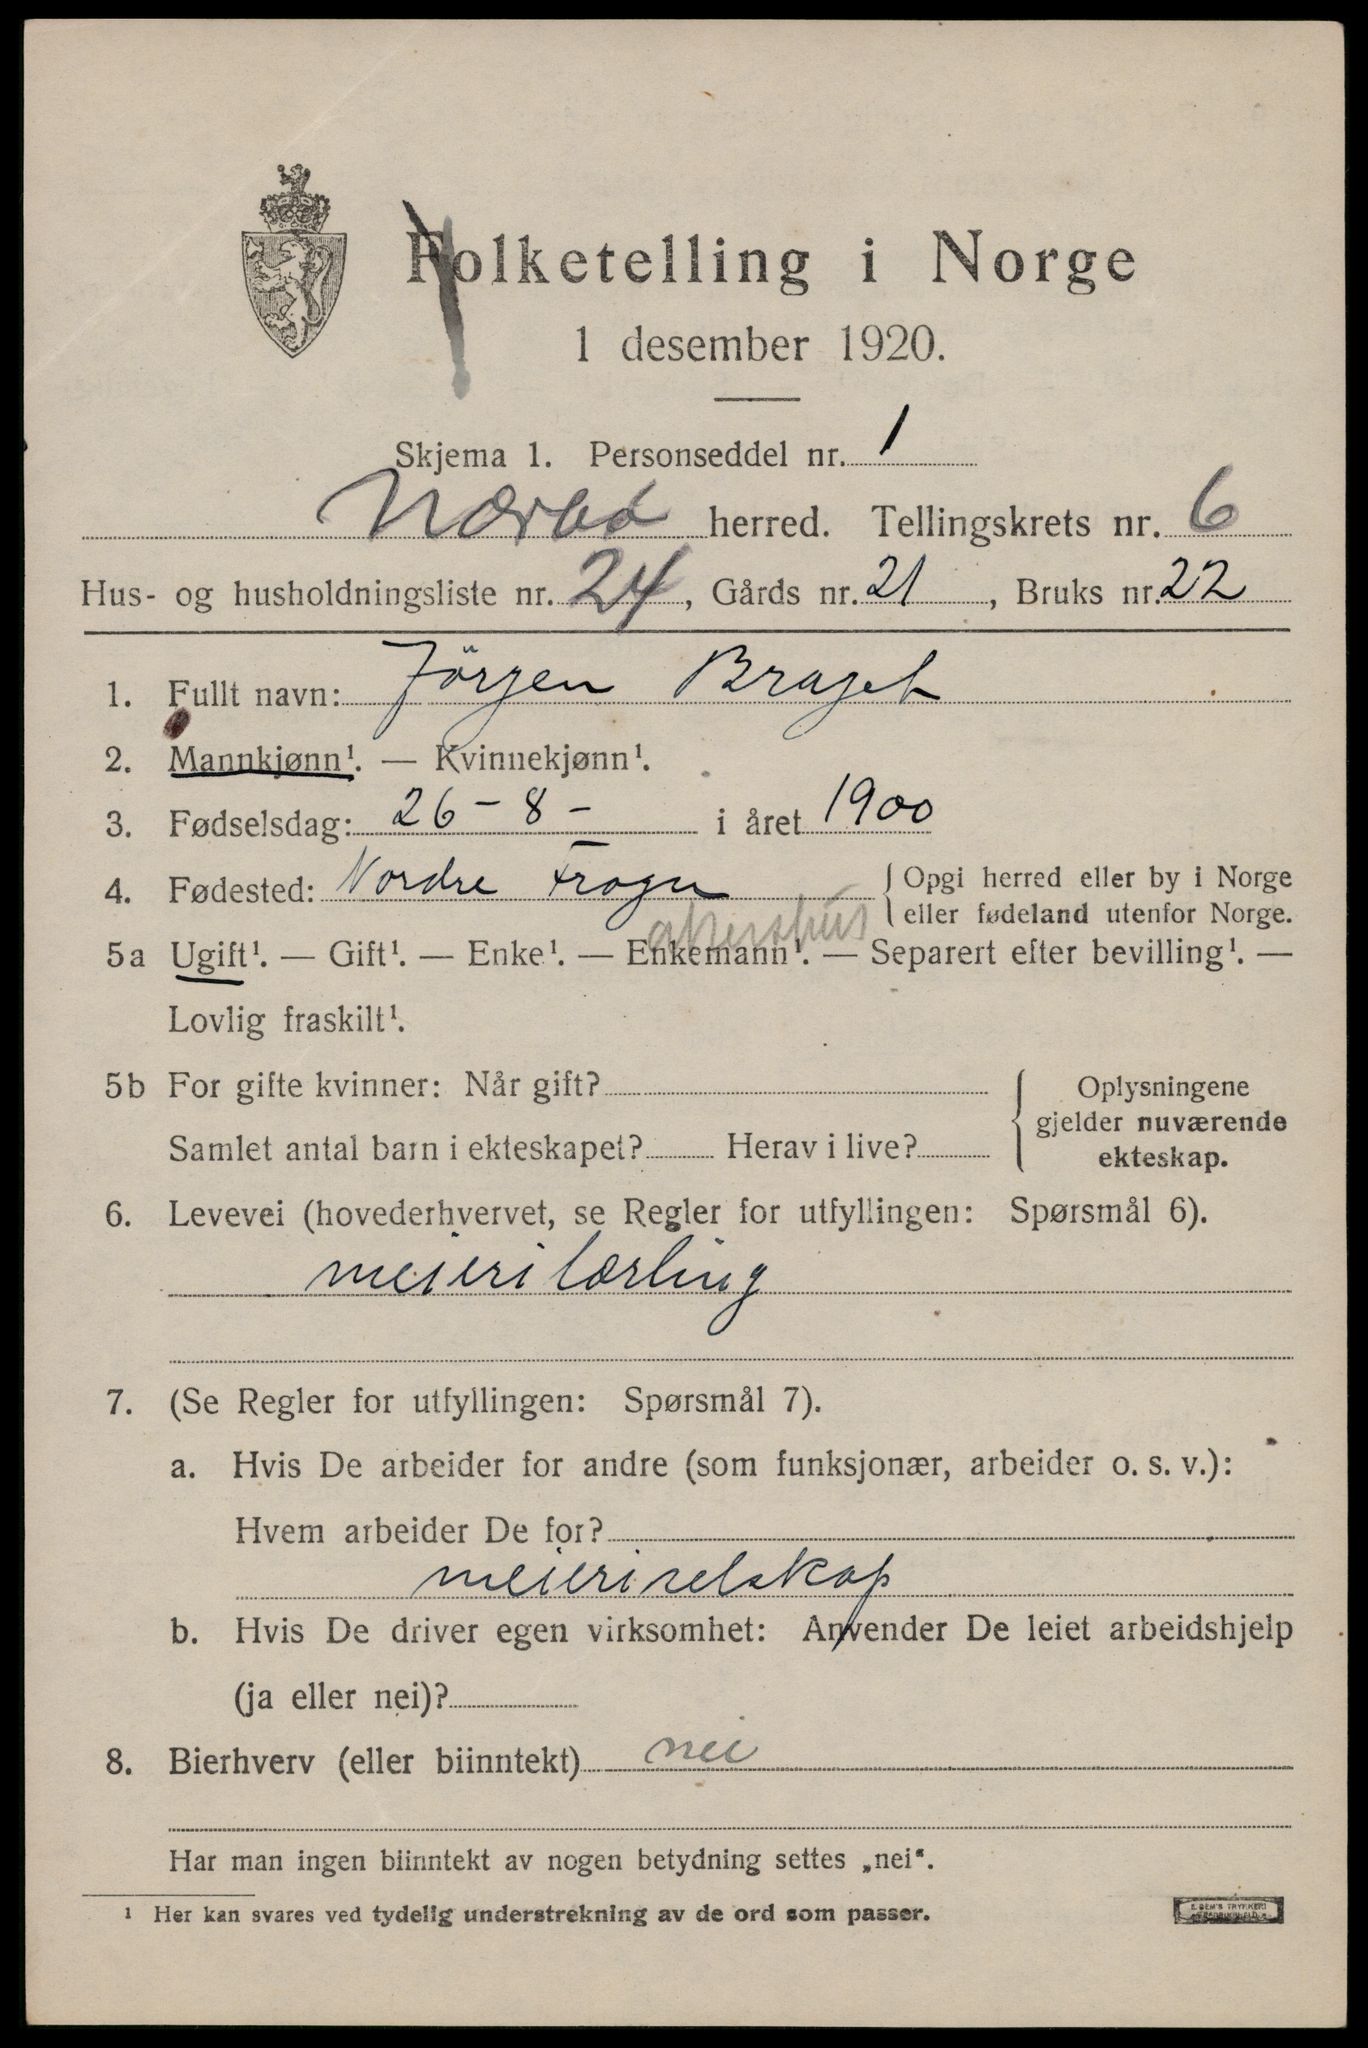 Folketelling i Norge
1 desember 1920.
Skjema 1. Personseddel nr. 1
Nærbø herred. Tellingskrets nr. 6
Hus- og husholdningsliste nr. 24, Gårds nr. 21, Bruks nr. 22
1. Fullt navn: Jörgen Braget
2. Mannkjønn¹. — Kvinnekjønn¹.
3. Fødselsdag: 26 - 8 - i året 1900
4. Fødested: Nordre Frogn { Opgi herred eller by i Norge
eller fødeland utenfor Norge.
akershus
5a Ugift¹. — Gift¹. — Enke¹. — Enkemann¹. — Separert efter bevilling¹. —
Lovlig fraskilt¹.
5b For gifte kvinner: Når gift? { Oplysningene
gjelder nuværende
Samlet antal barn i ekteskapet? Herav i live? ekteskap.
6. Levevei (hovederhvervet, se Regler for utfyllingen: Spørsmål 6).
meierilærling
7. (Se Regler for utfyllingen: Spørsmål 7).
a. Hvis De arbeider for andre (som funksjonær, arbeider o. s. v.):
Hvem arbeider De for?
meieriselskap
b. Hvis De driver egen virksomhet: Anvender De leiet arbeidshjelp
(ja eller nei)?
8. Bierhverv (eller biinntekt) nei
Har man ingen biinntekt av nogen betydning settes „nei“.
¹ Her kan svares ved tydelig understrekning av de ord som passer.